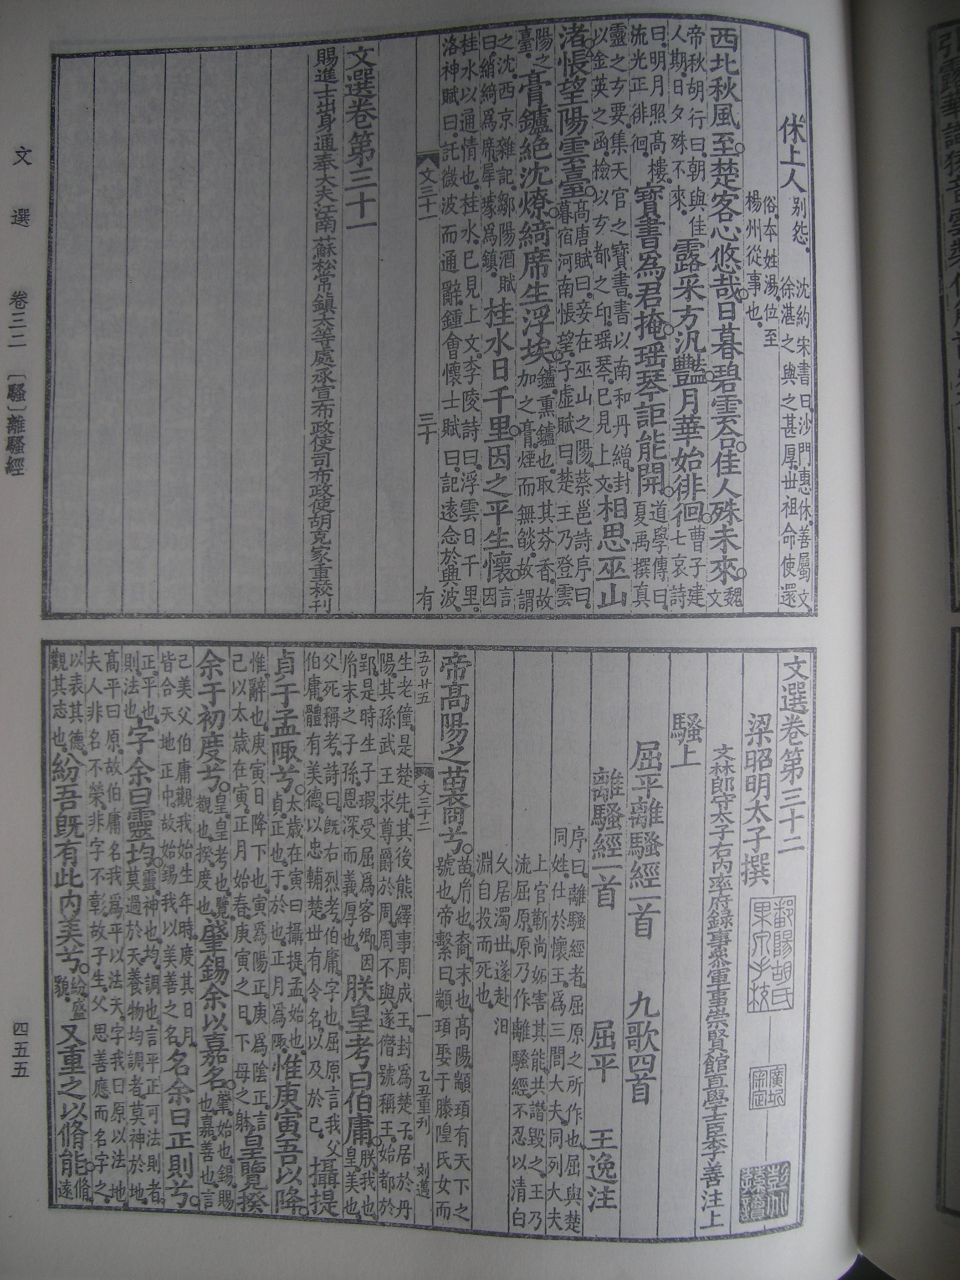 休上人 別怨 沈約宋書曰沙門惠休善屬文
徐湛之與之甚厚世祖命使還
俗本姓湯位至
楊州從事也
西北秋風至楚客心悠哉日暮碧雲合佳人殊未來 魏文
帝秋胡行曰朝與佳
人期日夕殊不來 露采方汎豔月華始徘徊 曹子建七哀詩
曰明月照高樓
流光正徘徊 寶書為君掩瑤琴詎能開 道學傳曰夏禹撰真
靈之玄要集天官之寶書書以南和丹繒封
以金英之函檢以玄都之印瑤琴已見上文 相思巫山
渚悵望陽雲臺 高唐賦曰妾在巫山之陽蔡邕詩序曰
暮宿河南悵望子虛賦曰楚王乃登雲
陽之
臺 膏鑪絕沈燎綺席生浮埃 鑪熏鑪也取其芬香故
加之膏煙而無燄故謂
之沈西京雜記鄒陽酒賦
曰綃綺為席犀璩為鎮 桂水日千里因之平生懷 言因
桂水以通情也桂水已見上文李陵詩曰浮雲日千里
洛神賦曰託微波而通辭鍾會懷士賦曰記遠念於興波
文三十一 三十 有
文選卷第三十一
賜進士出身通奉大夫江南蘇松常鎮太等處承宣布政使司布政使胡克家重校刊
文選卷第三十二
梁昭明太子撰
文林郎守太子右內率府錄事參軍事崇賢館直學士臣李善注上
騷上
屈平離騷經一首 九歌四首
離騷經一首 屈平 王逸注
序曰離騷經者屈原之所作也屈與楚
同姓仕於懷王為三閭大夫同列大夫
上官靳尚妒害其能共譖毀之王乃
流屈原原乃作離騷經不忍以清白
久居濁世遂赴汨
淵自投而死也
帝高陽之苗裔兮 苗胤也裔末也高陽顓頊有天下之
號也帝繫曰顓頊娶于滕隍氏女而
五百廿五 文三十二 一 乙丑重刊 刘邁
生老僮是楚先其後熊繹事周成王封為楚子居於丹
陽其孫武王求尊爵於周周不與遂僭號稱王始都於
郢是時生子瑕受屈為客卿因
胤末之子孫恩深而義厚也 朕皇考曰伯庸 朕我也皇美也
父死稱考詩曰既右烈考伯庸字也屈原言我父
伯庸體有美德以忠輔楚世有令名以及於己 攝提
貞于孟陬兮 太歲在寅曰攝提孟始也
貞正也于於也正月為陬 惟庚寅吾以降
惟辭也庚寅日降下也寅為陽正庚為陰正言
己以太歲在寅正月始春庚寅之日下母之躰 皇覽揆
余于初度兮 皇皇考也覽
觀也揆度也 肇錫余以嘉名 肇始也錫賜
也嘉善也言
己美父伯庸觀我始生年時度其日月
皆合天地正中故始錫我以美善之名 名余曰正則兮
正平也
則法也 字余曰靈均 靈神也均調也言平正可法則者
莫過於天養物均調者莫神於地
高平曰原故伯庸名我為平以法天字我曰原以法地
夫人非名不榮非字不彰故子生父思善應而名字之
以表其德
觀其志也 紛吾既有此內美兮 紛盛
貌 又重之以脩能 脩
遠
文選 卷三二 〔騷〕離騷經 四五五